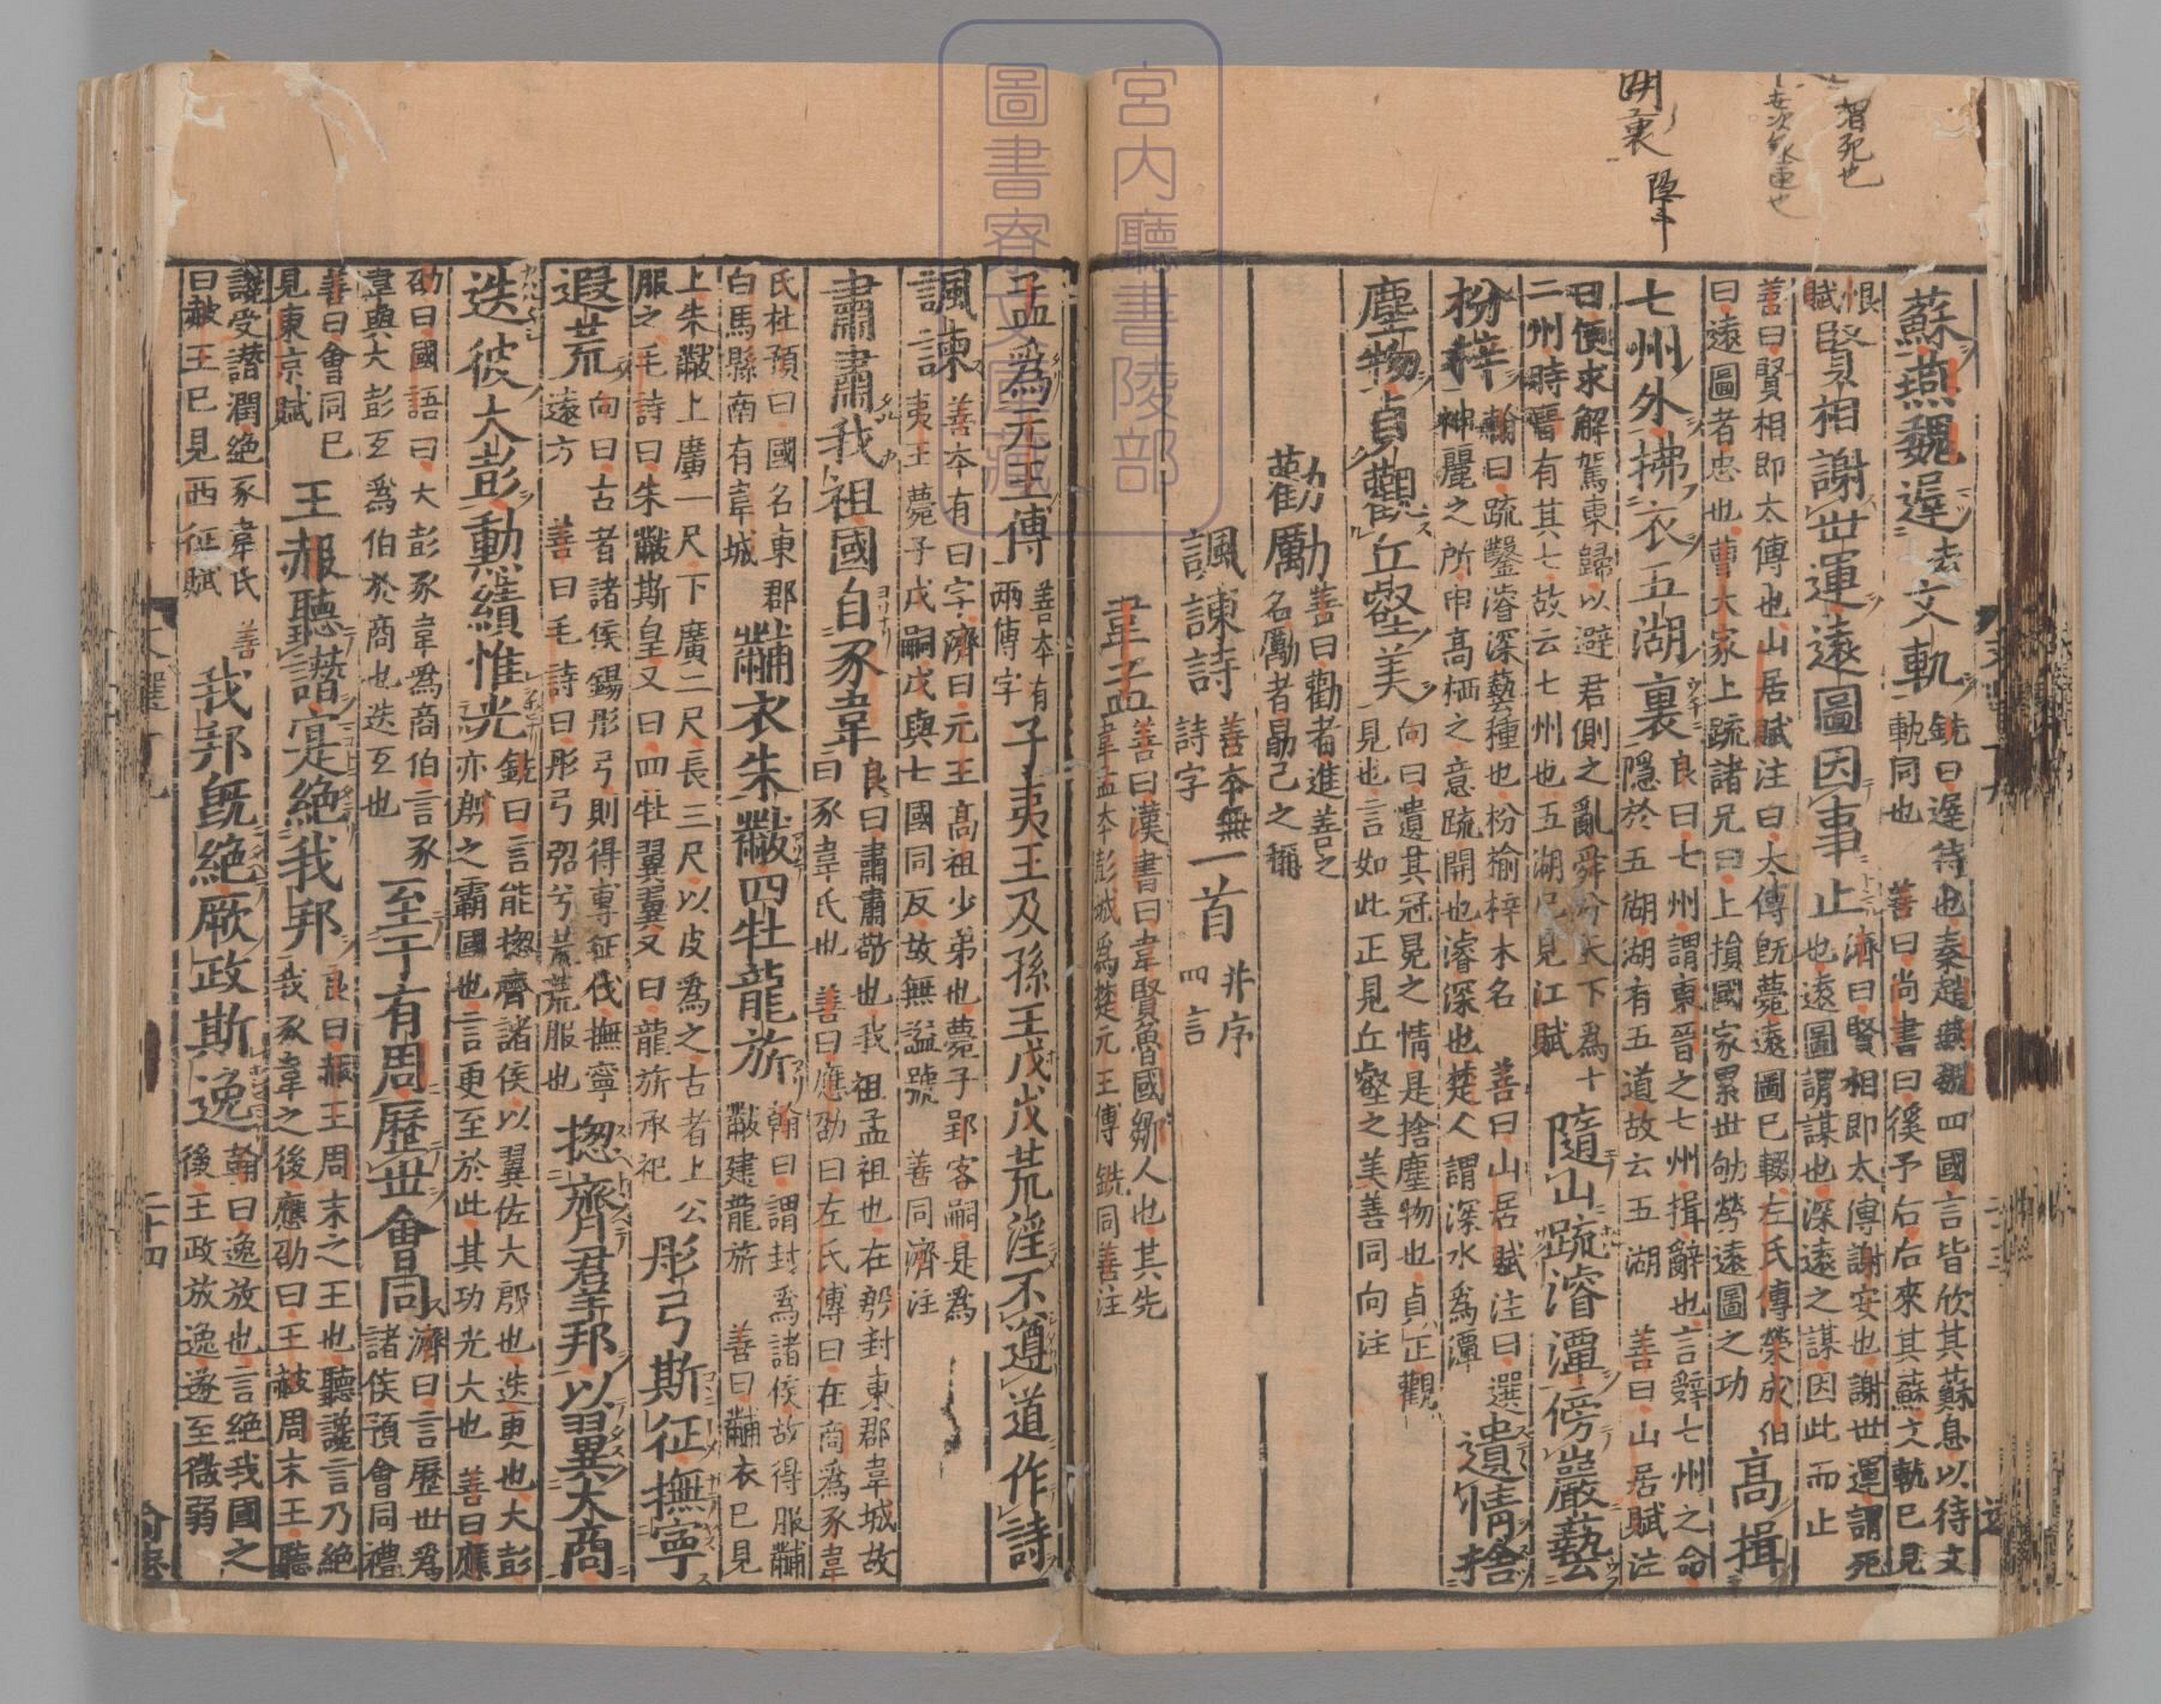 蘇燕魏遲去文軌銑曰遲待也秦趙燕魏四國言皆欣其蘇息以待文軌同也善曰尚書曰徯予右右來其蘇文軌已見
恨賦賢相謝世運遠圖因事止濟曰賢相即太傅謝安也謝世運謂死也遠圖謂謀也深遠之謀因此而止
善曰賢相即太傅也山居賦注曰太傅旣薨遠圖已輟左氏傳榮成伯曰遠圖者忠也曹大家上疏諸兄曰上損國家累世劬勞遠圖之功高揖
七州外拂衣五湖裏良曰七州謂東晉之七州揖辭也言辭七州之命隱於五湖湖有五道故云五湖善曰山居賦注
曰便求解駕東歸以避君側之亂舜分天下爲十二州時晉有其七故云七州也五湖已見江賦隨山疏濬潭傍巖藝
枌梓翰曰疏鑿濬深藝種也枌榆梓木名善曰山居賦注曰選神麗之所申高栖之意疏開也濬深也楚人謂深水爲潭遺情捨
塵物貞觀丘壑美向曰遺其冠冕之情是捨塵物也貞正觀見也言如此正見丘壑之美善同向注
勸勵善曰勸者進善之名勵者勗己之稱
諷諫詩善本無詩字一首并序四言
韋孟善曰漢書曰韋賢魯國鄒人也其先韋孟本彭城爲楚元王傅銑同善注
孟爲元王傅善本有兩傅字子夷王及孫王戊戊荒淫不遵道作詩
諷諫善本有曰字濟曰元王高祖少弟也薨子郢客嗣是爲夷王薨子戊嗣戊與七國同反故無謚號善同濟注
肅肅我祖國自豕韋良曰肅肅敬也我祖孟祖也在殷封東郡韋城故曰豕韋氏也善曰應劭曰左氏傳曰在商爲豕韋
氏杜預曰國名東郡白馬縣南有韋城黼衣朱黻四牡龍旂翰曰謂封爲諸侯故得服黼黻建龍旂善曰黼衣已見
上朱黻上廣一尺下廣二尺長三尺以皮爲之古者上公服之毛詩曰朱黻斯皇又曰四牡翼翼又曰龍旂承祀彤弓斯征撫寧
遐荒向曰古者諸侯錫彤弓則得專征伐撫寧遠方善曰毛詩曰彤弓弨兮荒荒服也揔齊羣邦以翼大商
迭彼大彭勳績惟光銑曰言能揔齊諸侯以翼佐大殷也迭更也大彭亦殷之霸國也言更至於此其功光大也善曰應
劭曰國語曰大彭豕韋爲商伯言豕韋與大彭互爲伯於商也迭互也至于有周歷世會同濟曰言歷世爲諸侯預會同禮
善曰會同已見東京賦王赧聽譖寔絶我邦良曰赧王周末之王也聽讒言乃絶我豕韋之後應劭曰王赧周末王聽
讒受譖潤絶豕韋氏善曰赧王已見西征賦我邦旣絶厥政斯逸翰曰逸放也言絶我國之後王政放逸遂至微弱
二十四